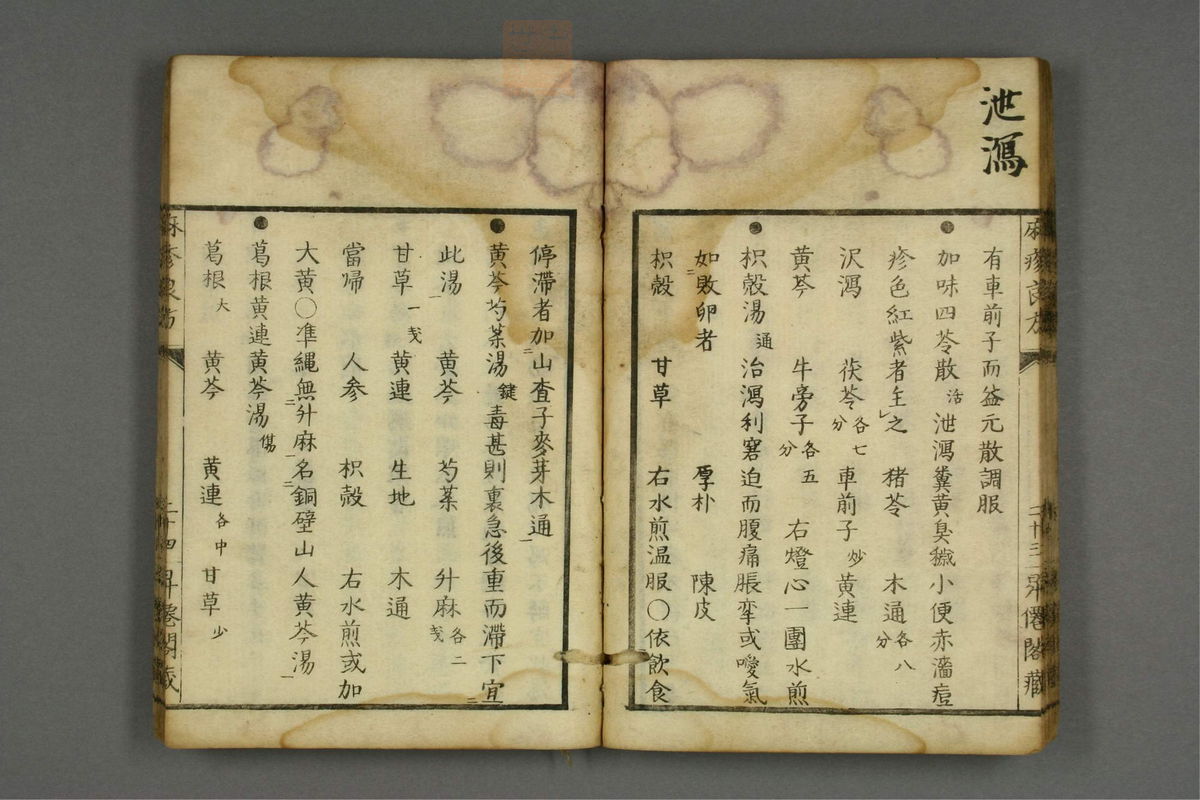 泄瀉
有車前子而益元散調服
加味四苓散 活 泄瀉糞黄臭穢小便赤濇痘
疹色紅紫者主之 猪苓 木通 各八分
沢瀉 茯苓 各七分 車前子 炒 黄連
黄芩 牛旁子 各五分 右燈心一團水煎
枳殻湯 通 治瀉利窘迫而腹痛脹牽或噯氣
如敗卵者 厚朴 陳皮
枳殻 甘草 右水煎温服〇依飲食
二十三 昇僊閣藏
停滯者加山査子麥芽木通
黄芩芍薬湯 鍵 毒甚則裏急後重而滞下宜
此湯 黄芩 芍薬 升麻 各二戔
甘草 一戔 黄連 生地 木通
當帰 人参 枳殻 右水煎或加
大黄〇準縄無升麻名銅壁山人黄芩湯
葛根黄連黄芩湯 傷
葛根 大 黄芩 黄連 各中 甘草 少
二十四 昇僊閣藏